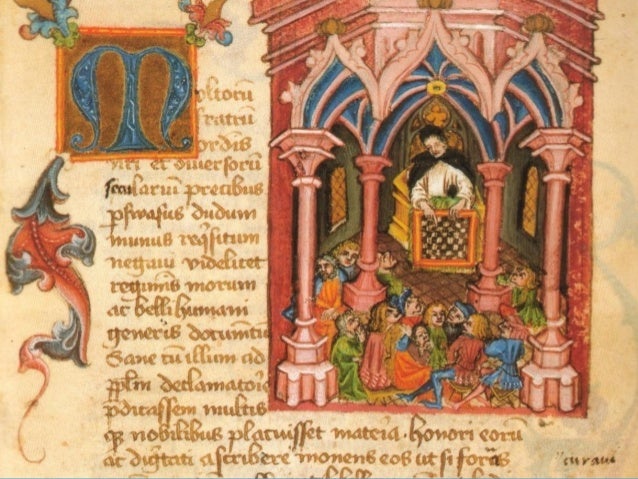 Multorū
fratrū
ordīs
nr̄i et diuersorū
seculariū precibus
ꝑswasus dudum
munus reqͥsitum
negaui videlicet
regimīs morum
ac belli humani
generis documētū
Sane cū illum ad
ppl̄m declamatorie
p̄dicassem multis
qꝫ nobilibus placuisset materia . honori eorū
ac dig̅tati ascribere monens eos ut si curaui